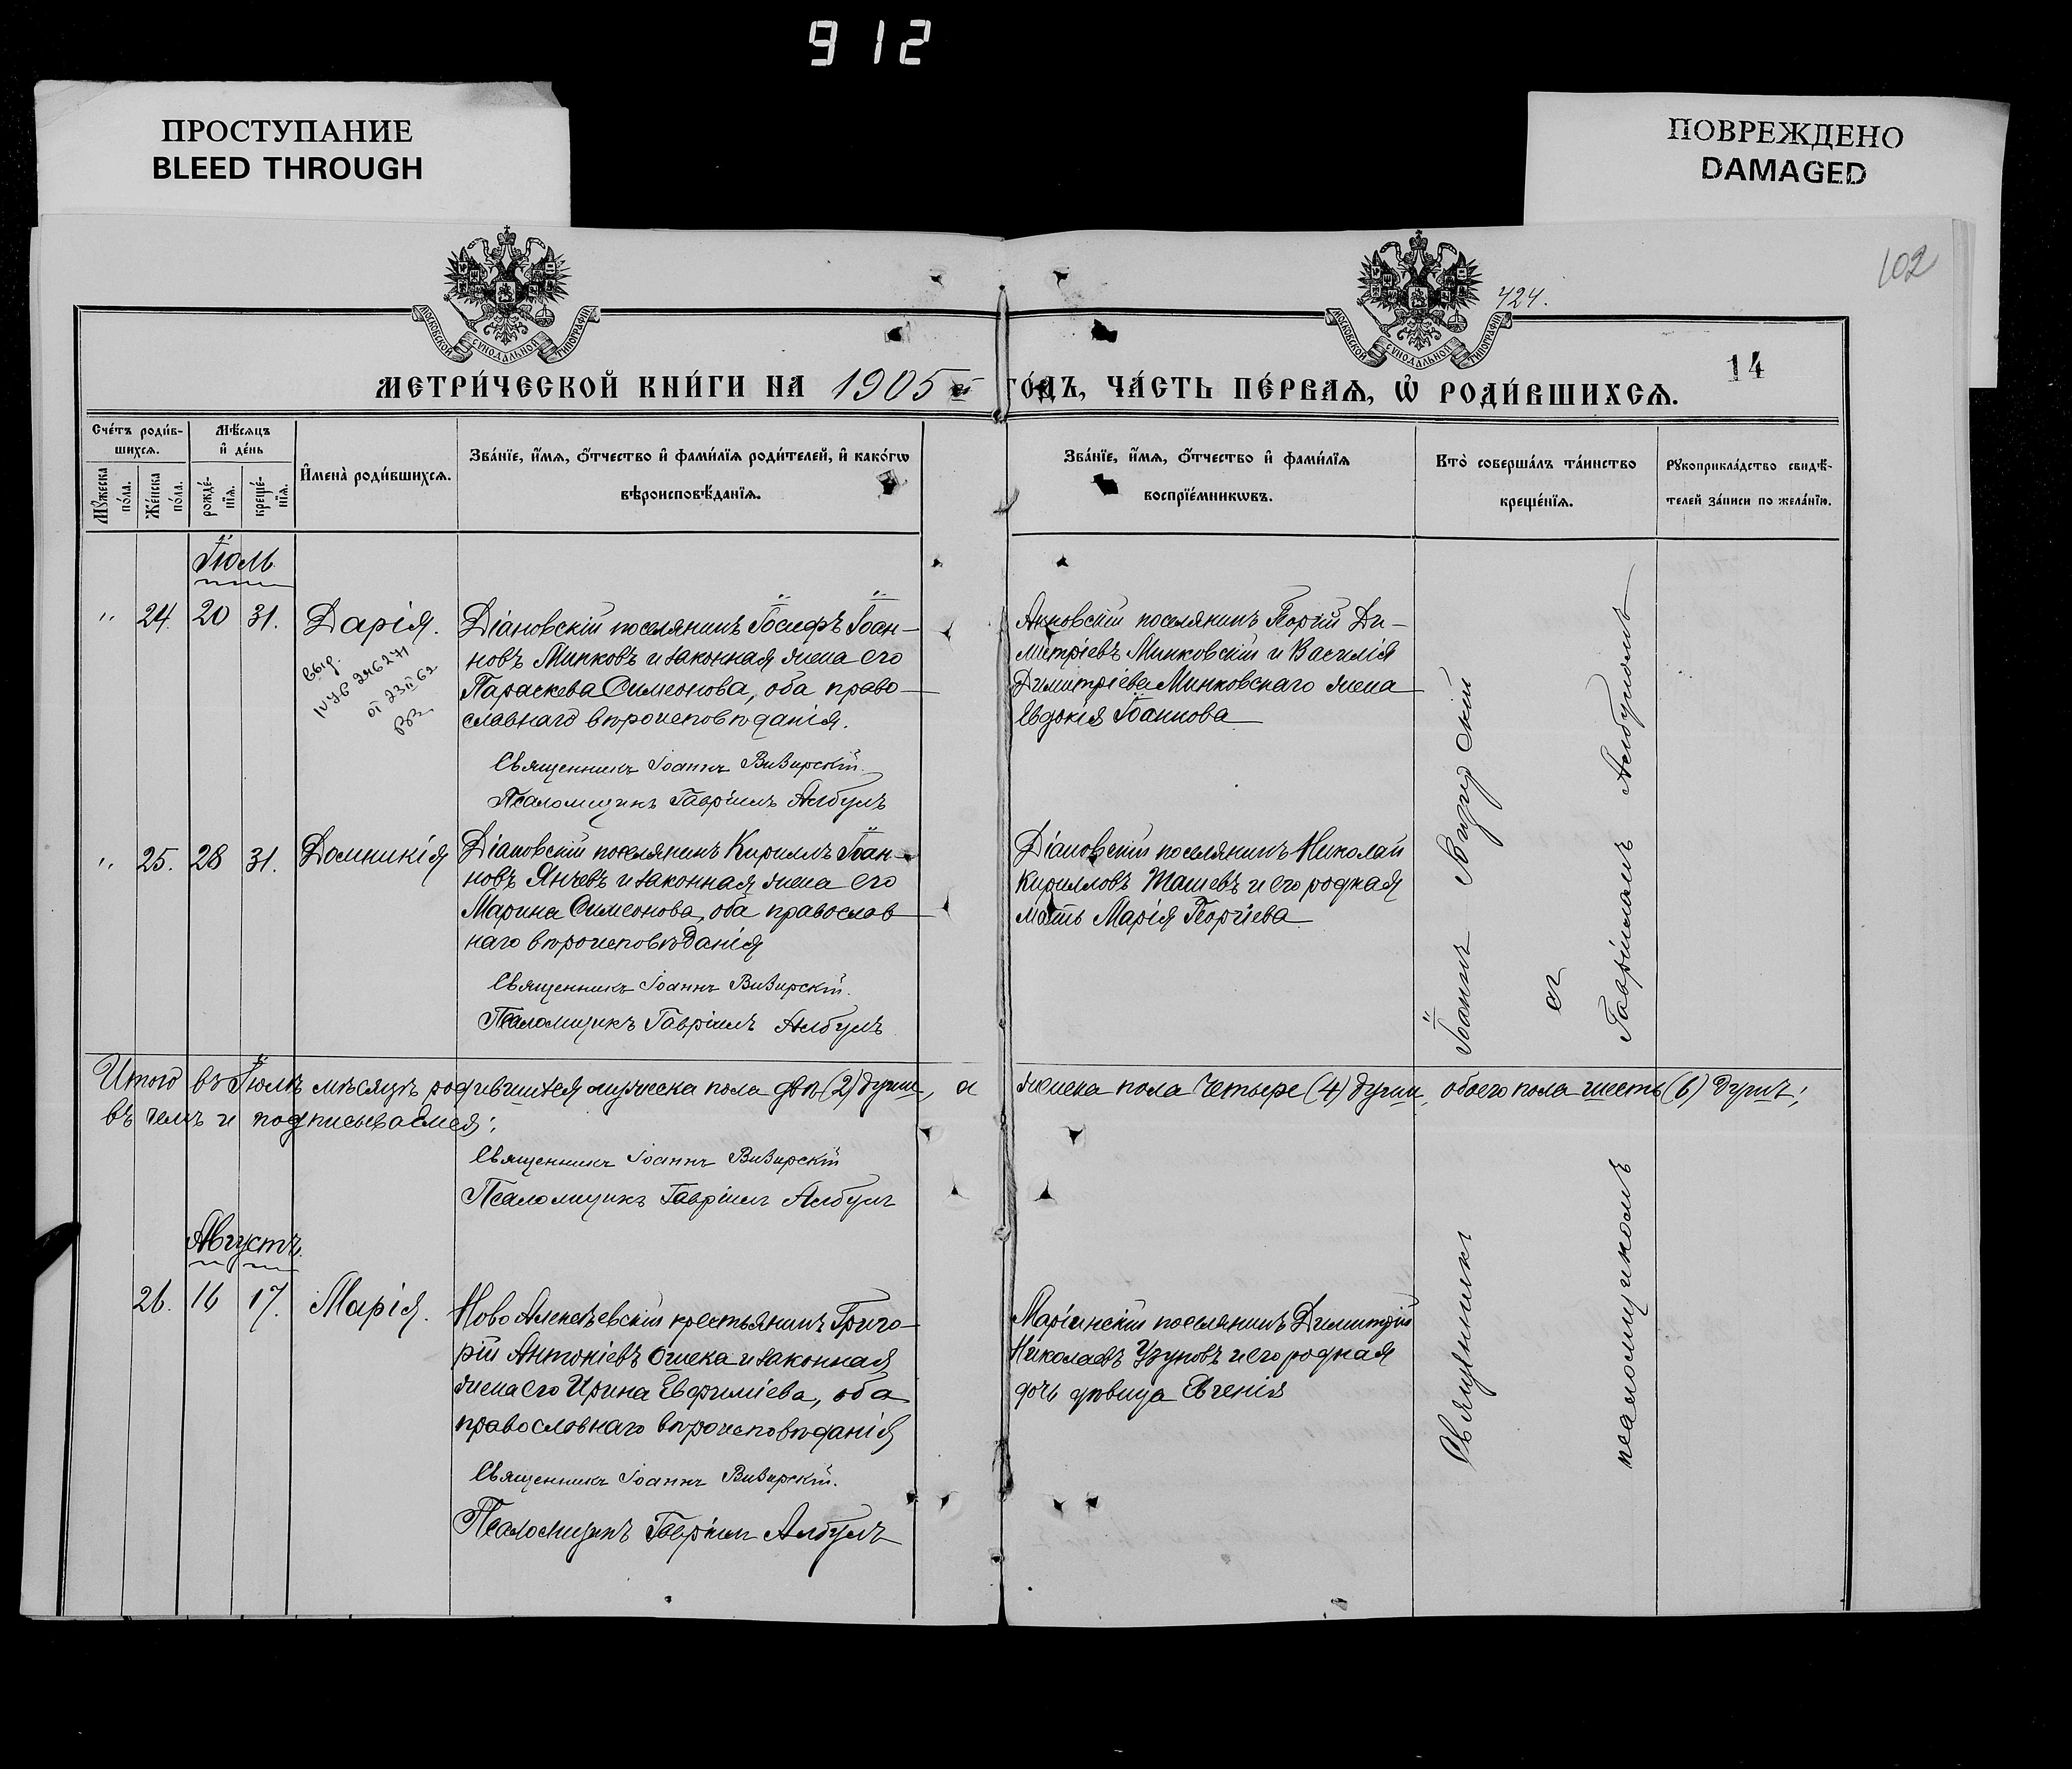 912
ПРОСТУПАНИЕ
BLEED THROUGH
ПОВРЕЖДЕНО
DAMAGED
102
424.
14
МОСКОВСКОЙ СѴНОДАЛЬНОЙ ТИПОГРАФІИ
МОСКОВСКОЙ СѴНОДАЛЬНОЙ ТИПОГРАФІИ
МЕТРИ́ЧЕСКОЙ КНИ́ГИ НА 1905 й ГО́ДЪ, ЧА́СТЬ ПЕ́РВАѦ, Ѡ҆ РОДИ́ВШИХСѦ.
Сче́тъ роди́в-
шихсѧ.
Мꙋ́жеска по́ла.
Же́нска по́ла.
Мѣ́сѧцъ
и҆ де́нь
рожде́-
нїѧ.
креще́-
нїѧ.
И҆мена̀ роди́вшихсѧ.
Зва́нїе, и҆́мѧ, ѻ҆́тчество и҆ фами́лїѧ роди́телей, и҆ како́гѡ
вѣроисповѣ́данїѧ.
Зва́нїе, и҆́мѧ, ѻ҆́тчество и҆ фами́лїѧ
воспрїе́мникѡвъ.
Кто̀ соверша́лъ та́инство
креще́нїѧ.
Рꙋкоприкла́дство свидѣ́-
телей за́писи по жела́нїю.
Іюль
" 24. 20 31. Дарія.
выд.
246271
от 23 II 62
Діановскій поселянинъ Іосифъ Іоан-
новъ Минковъ и законная жена его
Параскева Симеонова, оба право-
славнаго вѣроисповѣданія.
Священникъ Іоаннъ Визирскій.
Псаломщикъ Гавріилъ Албулъ
Анновскій поселянинъ Георгій Ди-
митріевъ Минковскій и Василія
Димитріева Минковскаго жена
Евдокія Іоаннова
" 25. 28 31. Домникія
Діановскій поселянинъ Кириллъ Іоан-
новъ Янчевъ и законная жена его
Марина Симеонова, оба православ
наго вѣроисповѣданія
Священникъ Іоаннъ Визирскій.
Псаломщикъ Гавріилъ Албулъ
Діановскій поселянинъ Николай
Кирилловъ Ташевъ и его родная
мать Марія Георгіева
Итого въ Іюлѣ мѣсяцѣ родившихся мужеска пола двѣ (2) души, а женска пола четыре (4) души, обоего пола шесть (6) душъ;
въ чемъ и подписываемся:
Священникъ Іоаннъ Визирскій
Псаломщикъ Гавріилъ Албулъ
Августъ.
26. 16 17. Марія.
Ново Алексѣевскій крестьянинъ Григо-
рій Антоніевъ и законная
жена его Ирина Евфиміева, оба
православнаго вѣроисповѣданія
Священникъ Іоаннъ Визирскій.
Псаломщикъ Гавріилъ Албулъ
Маріинскій поселянинъ Димитрій
Николаевъ Узуновъ и его родная
дочь дѣвица Евгенія
Священникъ Іоаннъ Визирскій
съ
псаломщикомъ Гавріиломъ Албуломъ